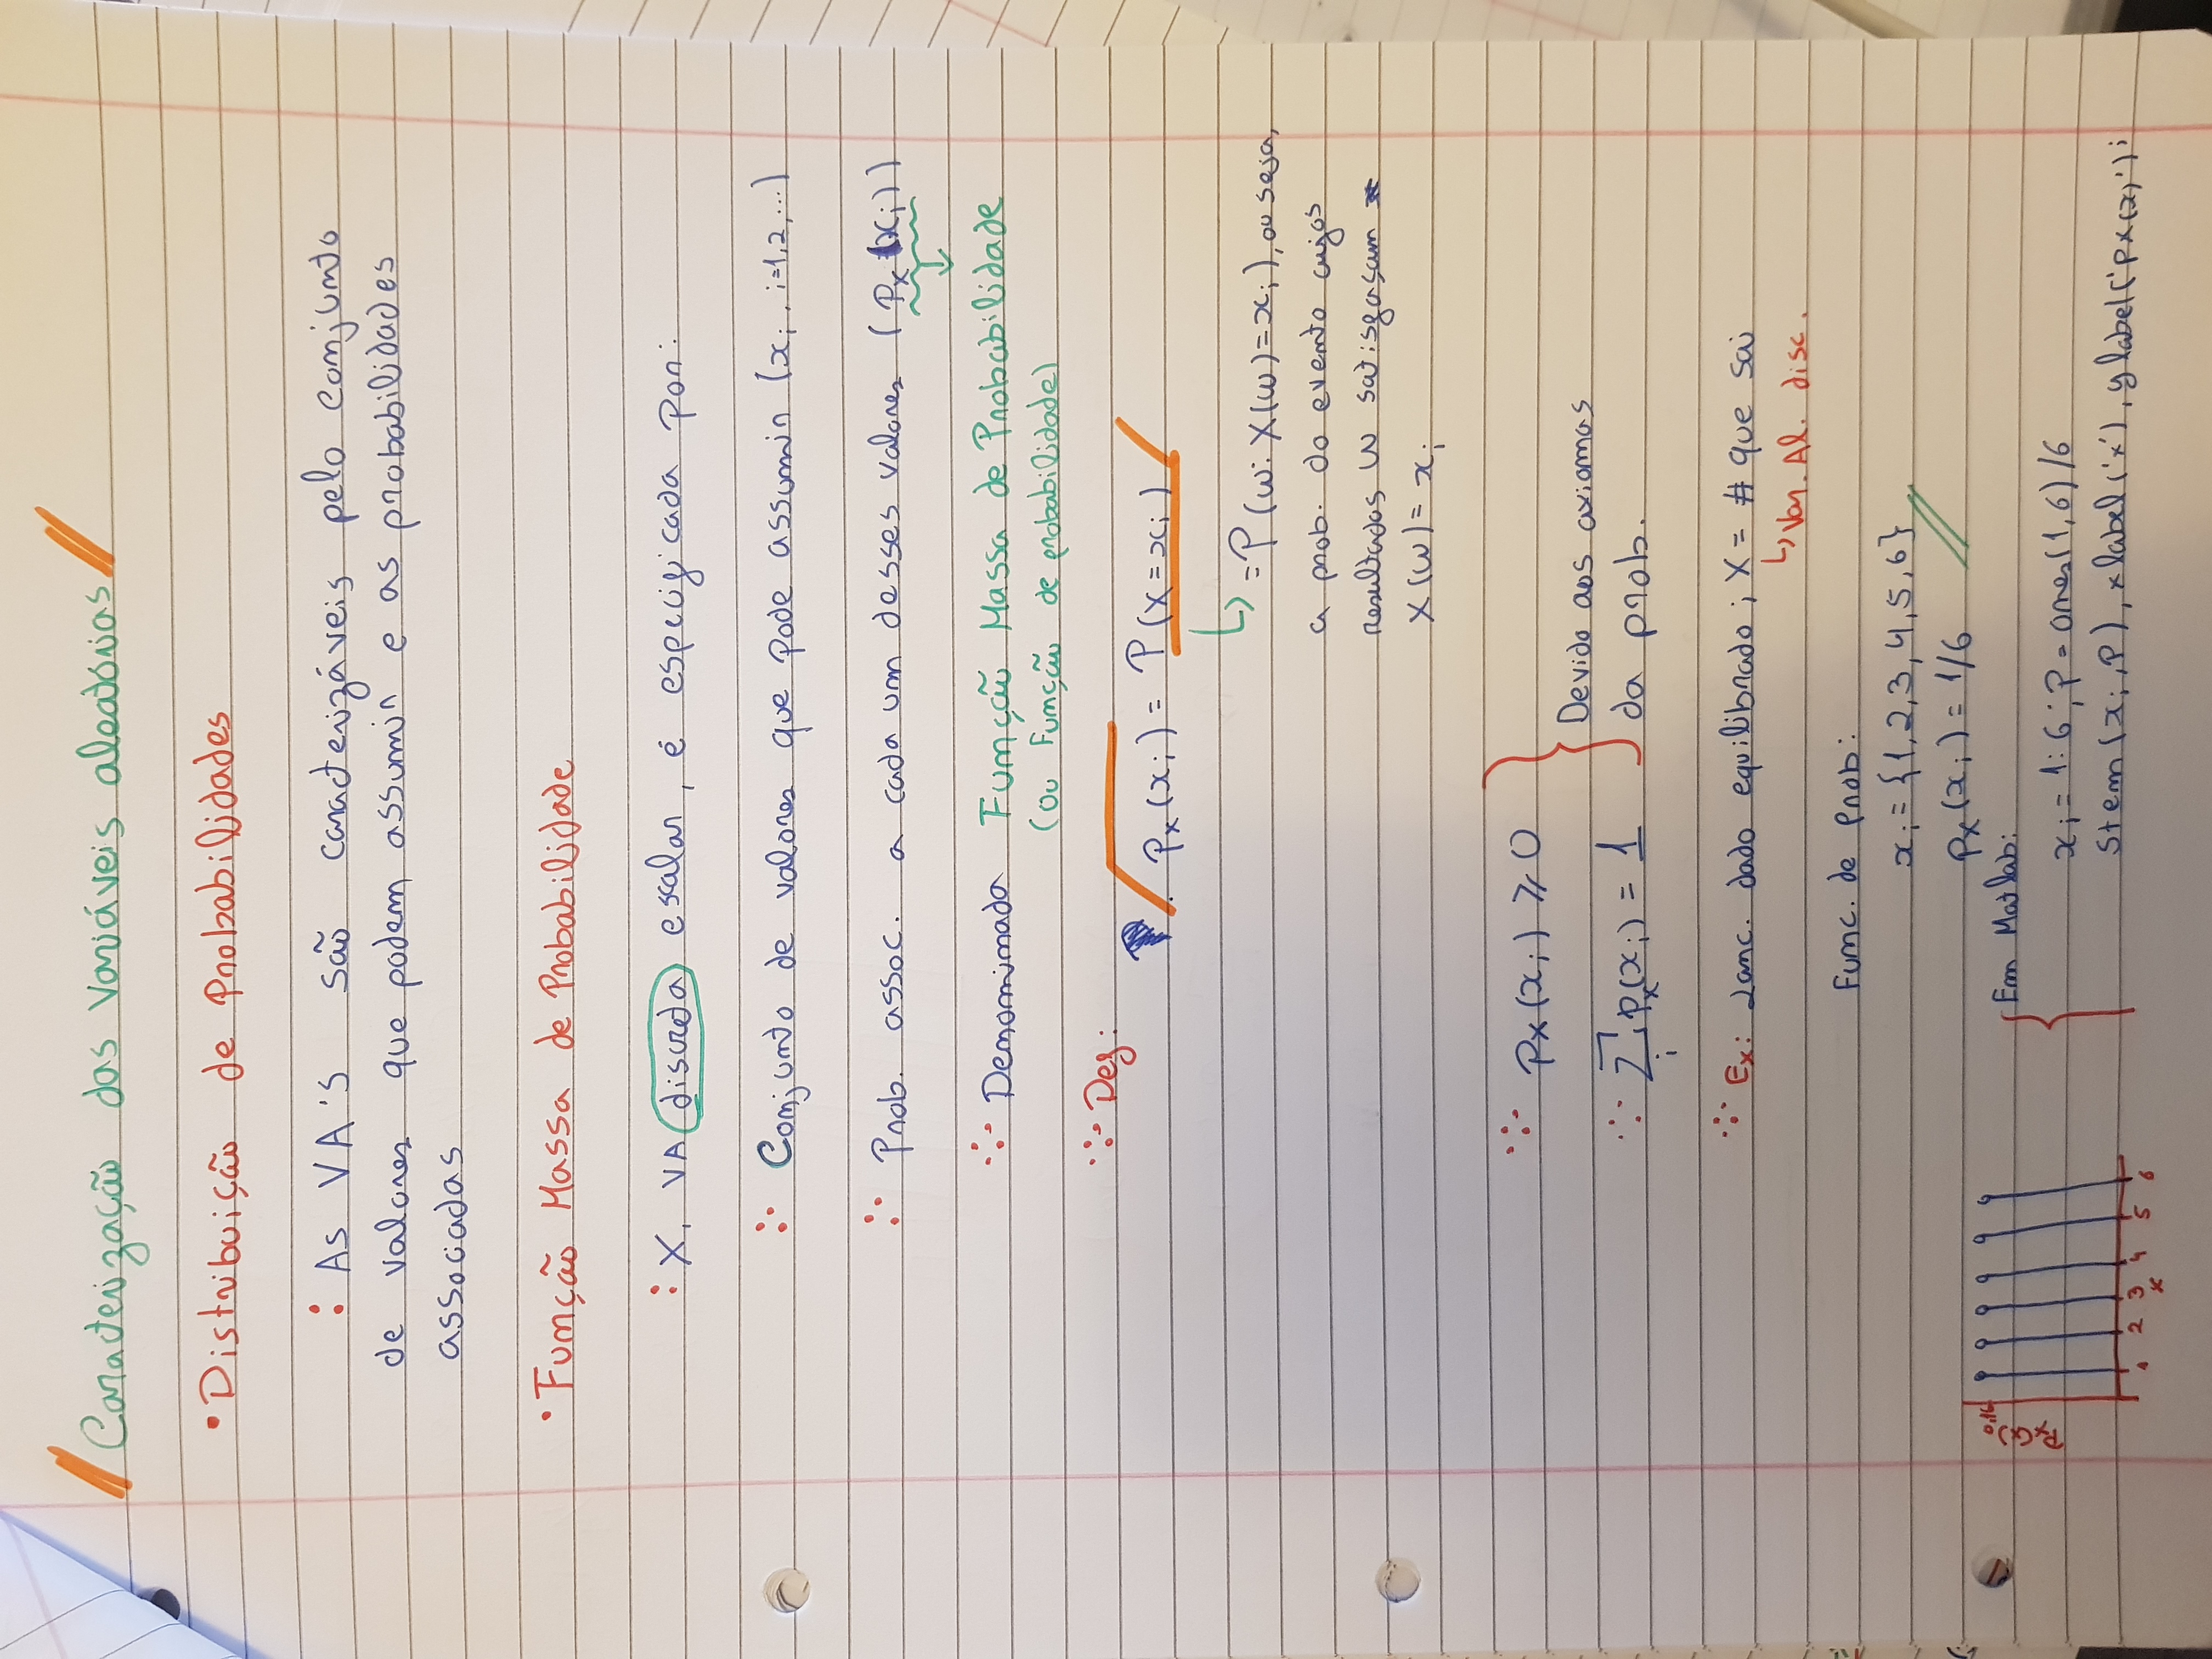 Caracterização das variáveis aleatórias
• Distribuição de Probabilidades
: As VA's são caracterizáveis pelo conjunto
de valores que podem assumir e as probabilidades
associadas
• Função Massa de Probabilidade
: X, VA discreta escalar, é especificada por:
Conjunto de valores que pode assumir (xi, i=1,2,...)
Prob. assoc. a cada um desses valores (px(xi))
Denominada Função Massa de Probabilidade
(ou Função de probabilidade)
Def:
px(xi) = P(X=xi)
↳ =P(w: X(w)=xi), ou seja,
a prob. do evento cujos
resultados w satisfaçam
X(w) = xi
px(xi) ⩾ 0
∑i px(xi) = 1
Devido aos axiomas
da prob.
Ex: Lanc. dado equilibrado; X = # que sai
↳ Var. Al. disc.
Func. de prob:
xi = {1,2,3,4,5,6}
px(xi) = 1/6
Em Matlab:
xi = 1:6; p = ones(1,6)/6
stem(xi,p), xlabel('x'), ylabel('px(x)');
px(x)
0,16
1 2 3 4 5 6
x